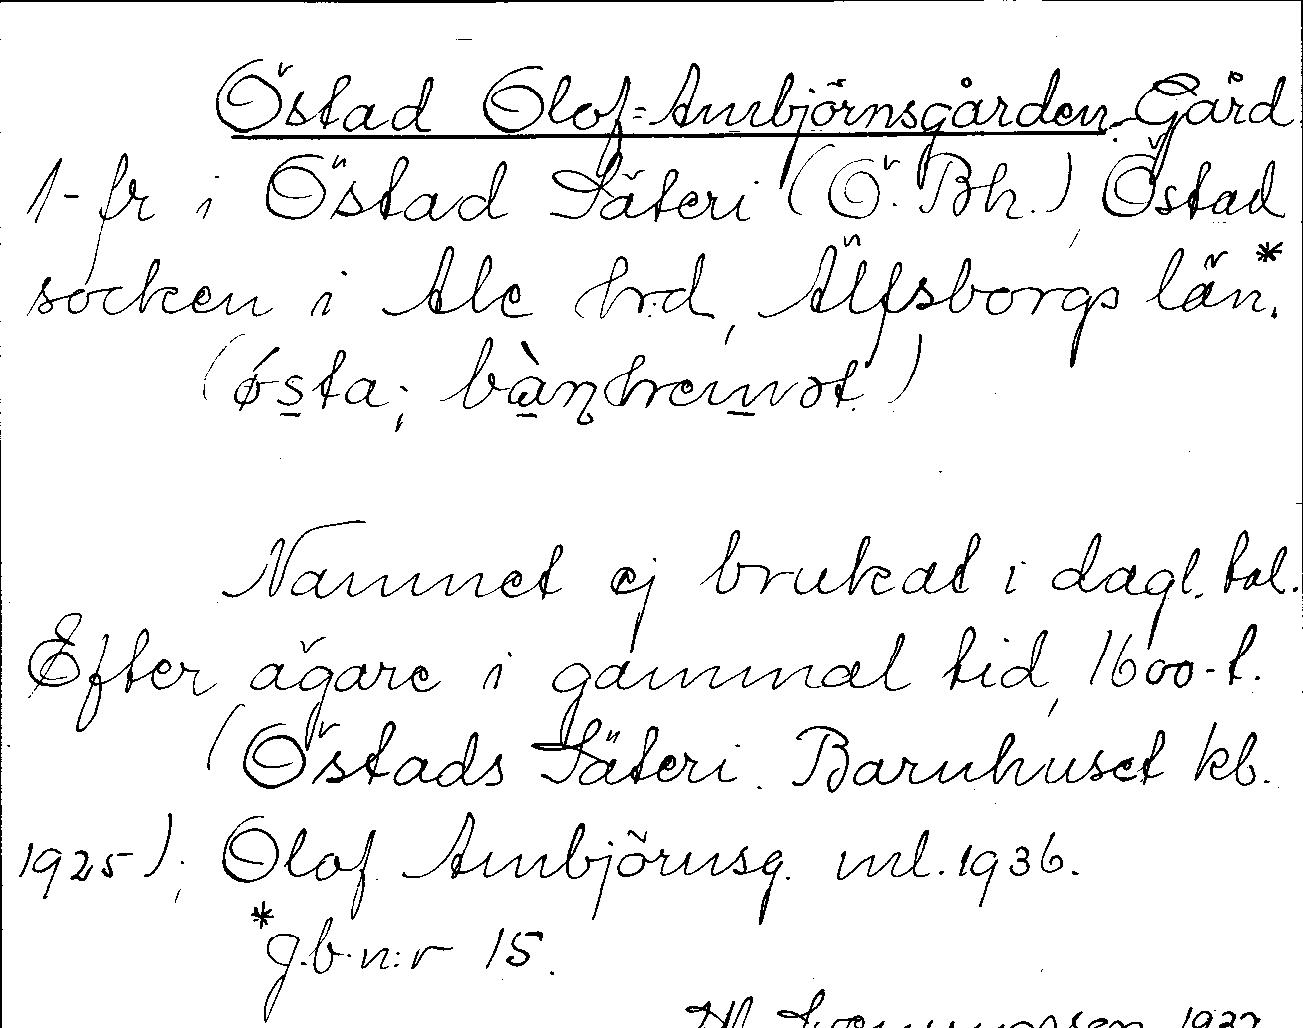 Östad Olof-Ambjörnsgården. Gård
1-fr i Östad Säteri (Ö. Bh.) Östad
socken i Ale hrd, Älfsborgs län.*
(østa; bàṇhreinət)
Namnet ej brukat i dagl. tal.
Efter ägare i gammal tid, 1600-t.
(Östads Säteri. Barnhuset kb.
1925); Olof Ambjörnsg. ml. 1936.
*g.b.n:r 15.
1937